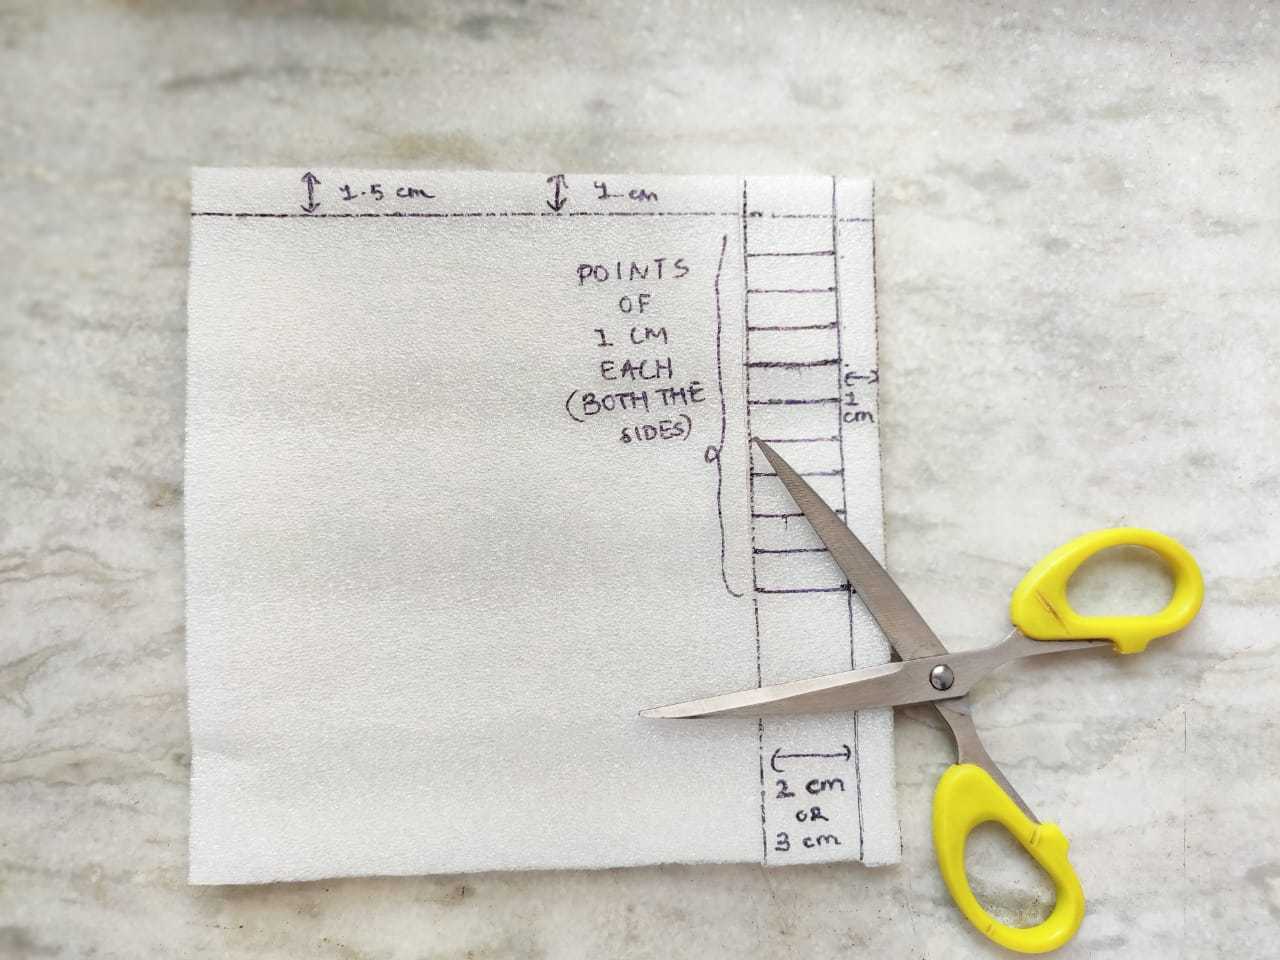 1.5 cm
1 cm
POINTS
OF
1 CM
EACH
(BOTH THE
SIDES)
1
cm
2 cm
OR
3 cm